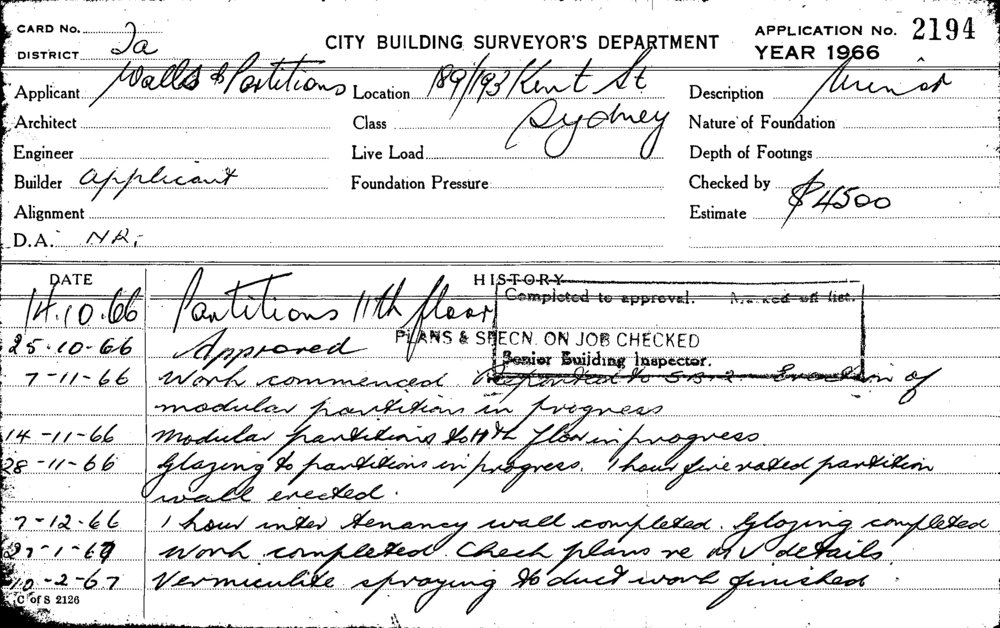 CARD No.
DISTRICT 2a
CITY BUILDING SURVEYOR'S DEPARTMENT
APPLICATION No. 2194
YEAR 1966
Applicant Walls & Partitions
Location 189/193 Kent St
Sydney
Description Minor
Architect
Class
Nature of Foundation
Engineer
Live Load
Depth of Footings
Builder Applicant
Foundation Pressure
Checked by
Alignment
Estimate $4500
D.A. NR.
DATE
HISTORY
14.10.66 Partitions 11th floor
Completed to approval. Marked off list.
PLANS & SPECN. ON JOB CHECKED
Senior Building Inspector.
25-10-66 Approved
7-11-66 Work commenced. Reported to S-B-2. Erection of
modular partitions in progress
14-11-66 Modular partitions to 11th floor in progress.
28-11-66 Glazing to partitions in progress. 1 hour fire rated partition
wall erected.
7-12-66 1 hour inter tenancy wall completed. Glazing completed
27-1-67 Work completed. Check plans re MV details.
10-2-67 Vermiculite spraying to duct work finished.
C of S 2126